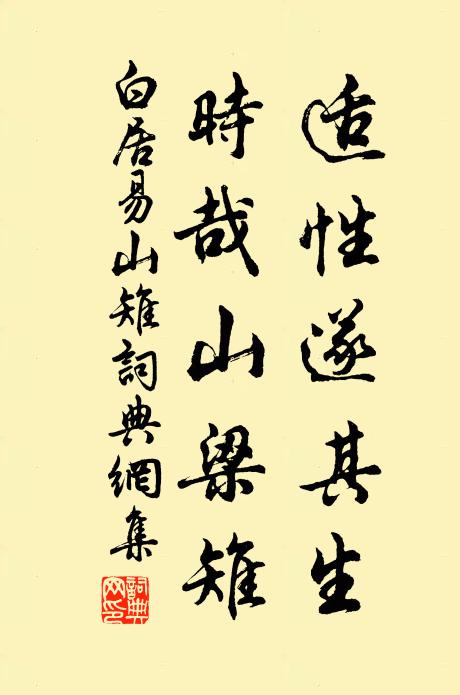 适性遂其生
時哉山梁雉
白居易山雉詞典網集
詞典网印